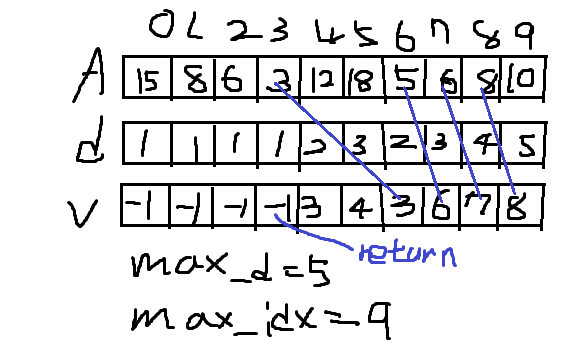 0 1 2 3 4 5 6 7 8 9
A 15 8 6 3 12 18 5 6 8 10
d 1 1 1 1 2 3 2 3 4 5
v -1 -1 -1 -1 3 4 3 6 7 8
return
max_d=5
max_idx=9